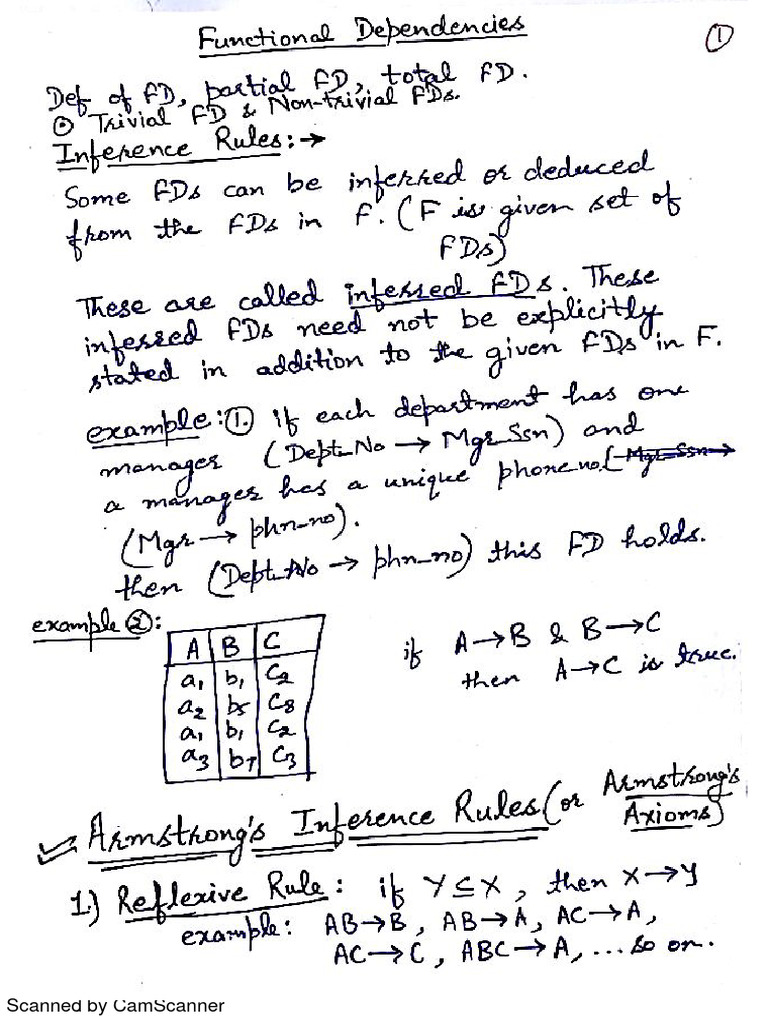 Functional Dependencies
①
Def of FD, partial FD, total FD.
⊙ Trivial FD & Non-trivial FDs.
Inference Rules:→
Some FDs can be inferred or deduced
from the FDs in F. (F is given set of
FDs)
These are called inferred FDs. These
inferred FDs need not be explicitly
stated in addition to the given FDs in F.
example:①. if each department has one
manager (Dept_No → Mgr_Ssn) and
a manager has a unique phone no. (Mgr_Ssn→
(Mgr → phn_no).
then (Dept_No → phn_no) this FD holds.
example ②:
A B C
a₁ b₁ C₂
a₂ b₅ C₈
a₁ b₁ C₂
a₃ b₇ C₃
if A→B & B→C
then A→C is true.
✓ Armstrong's Inference Rules (or Armstrong's
Axioms)
1.) Reflexive Rule: if Y⊆X, then X→Y
example: AB→B, AB→A, AC→A,
AC→C, ABC→A, ... so on.
Scanned by CamScanner